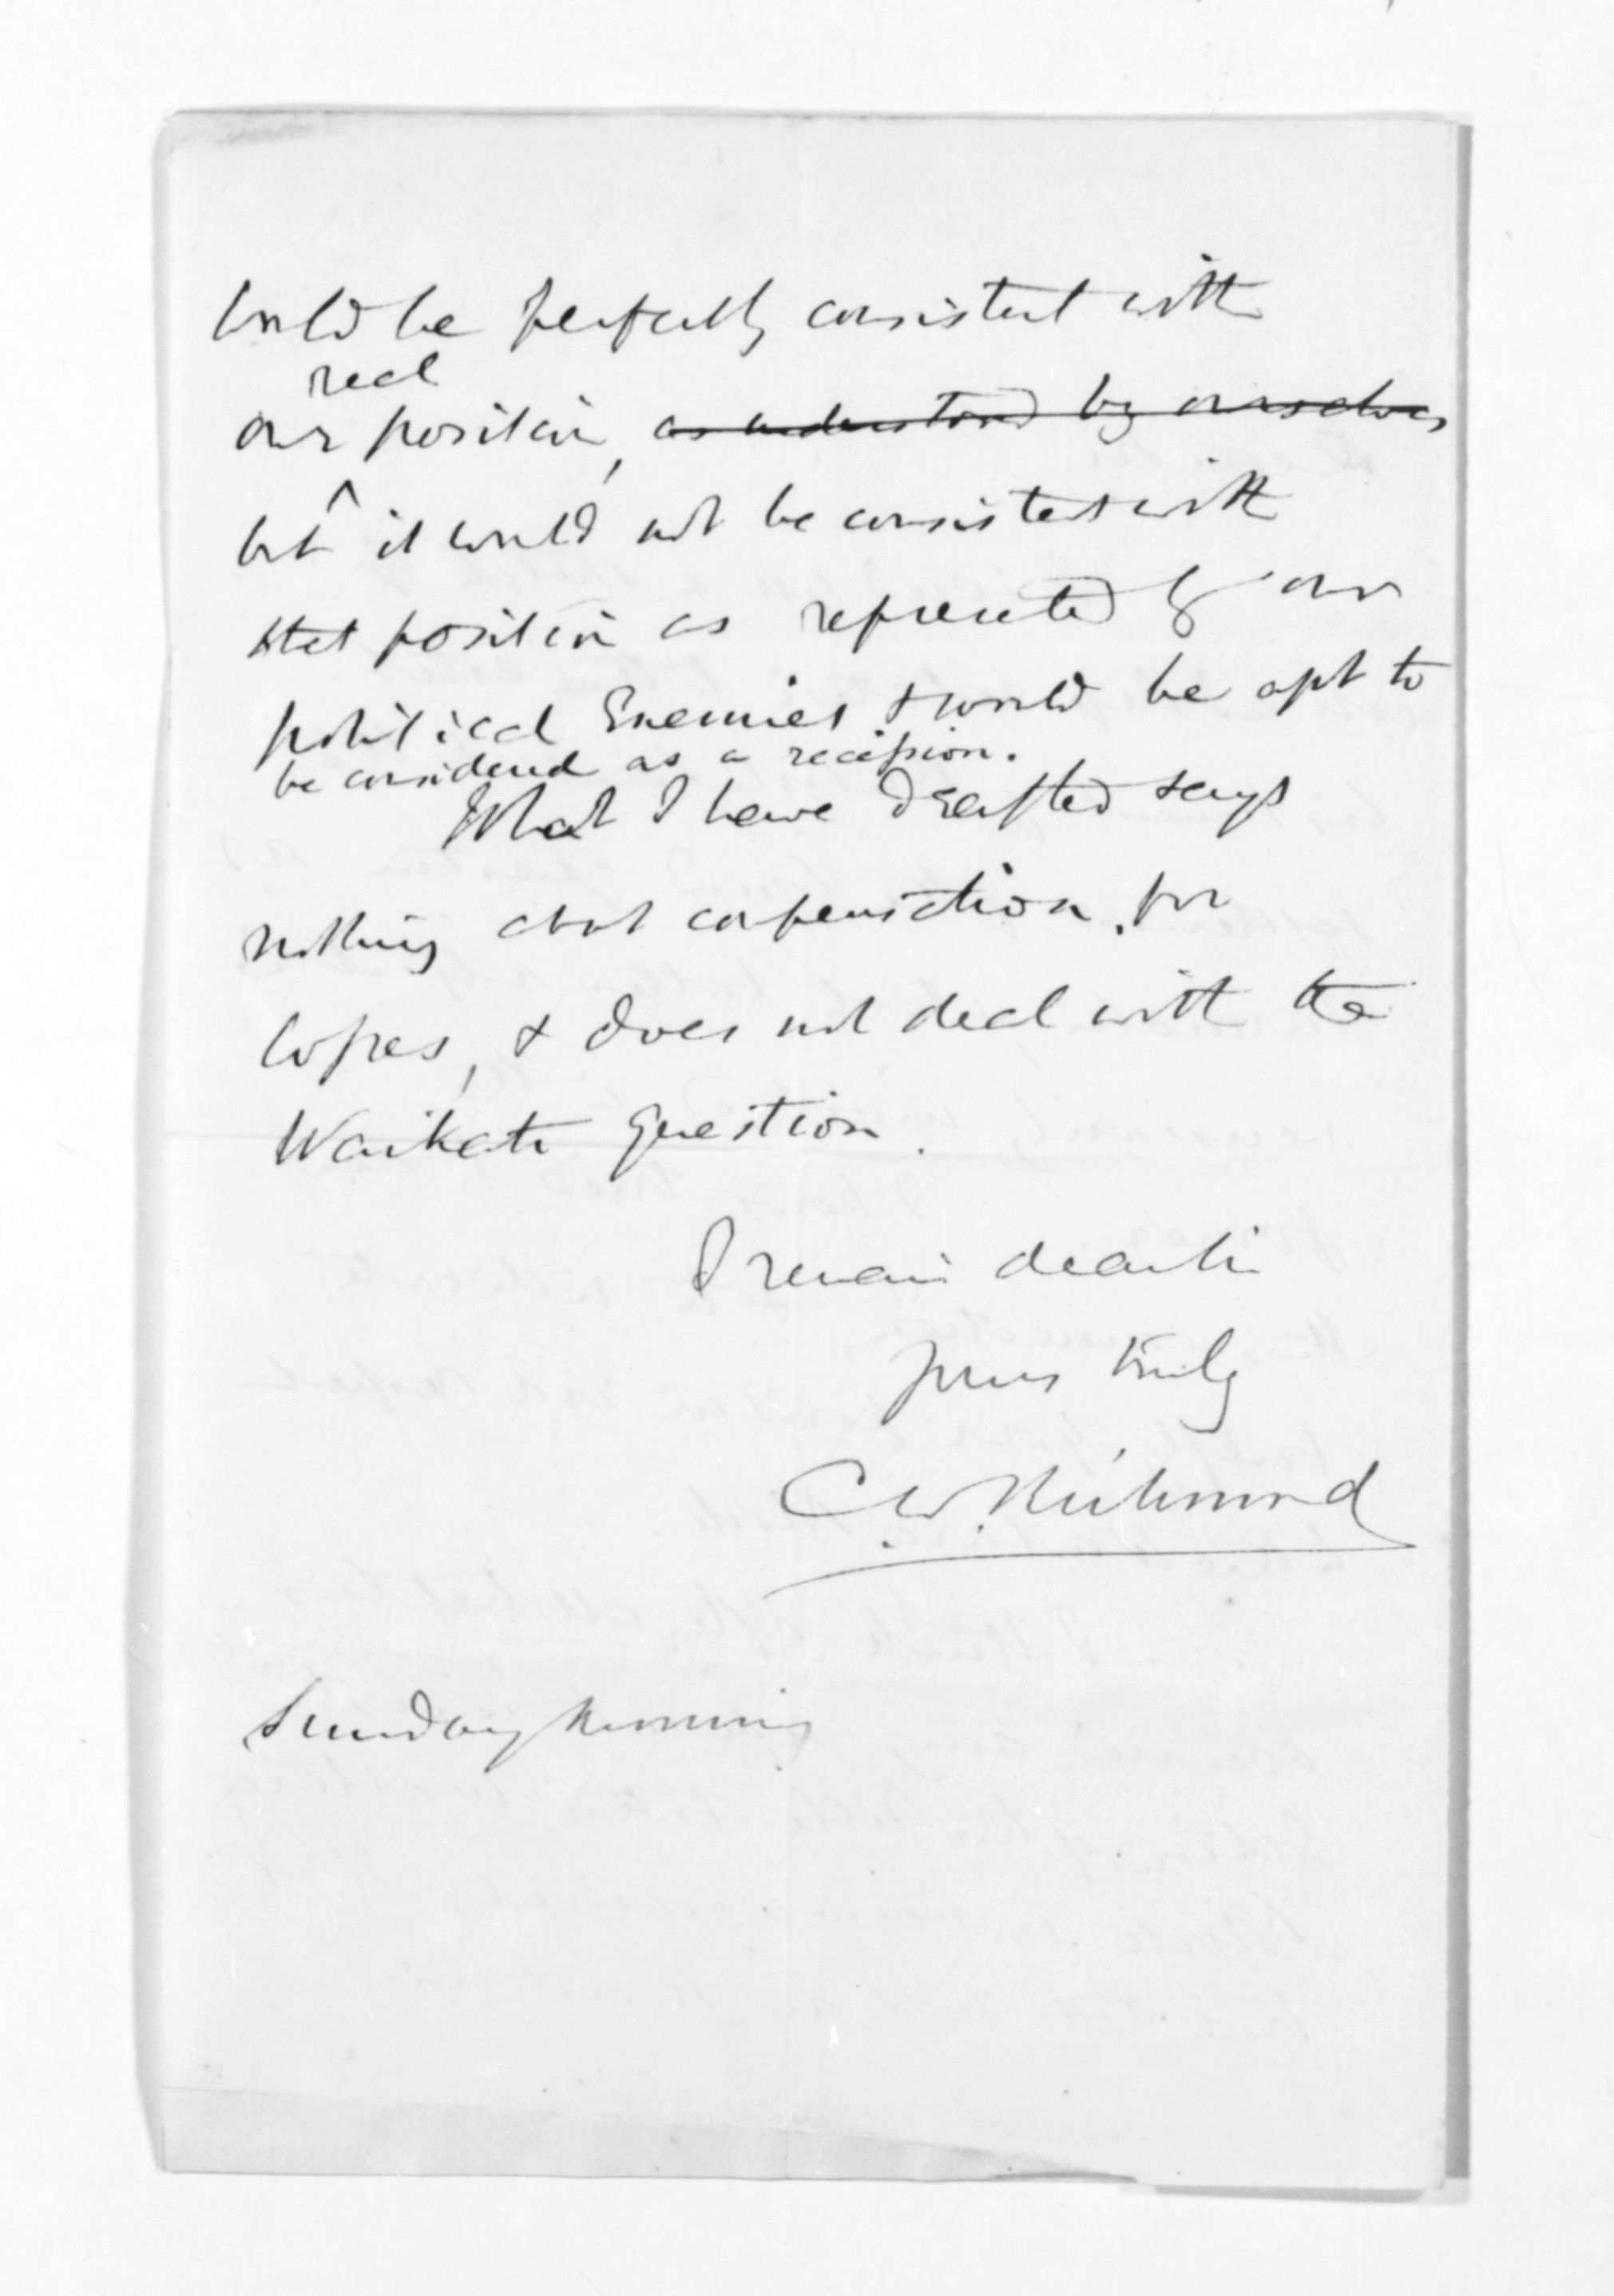 would be perfectly consistent with
real
our position, as understood by ourselves,
but it would not be consistent with
that position as represented by our
political Enemies & would be apt to
be considered as a recession.
What I have drafted says
nothing about compensation for
losses, & does not deal with the
Waikato question.
I remain dear Sir
yours truly
C.W. Richmond
Sunday Morning